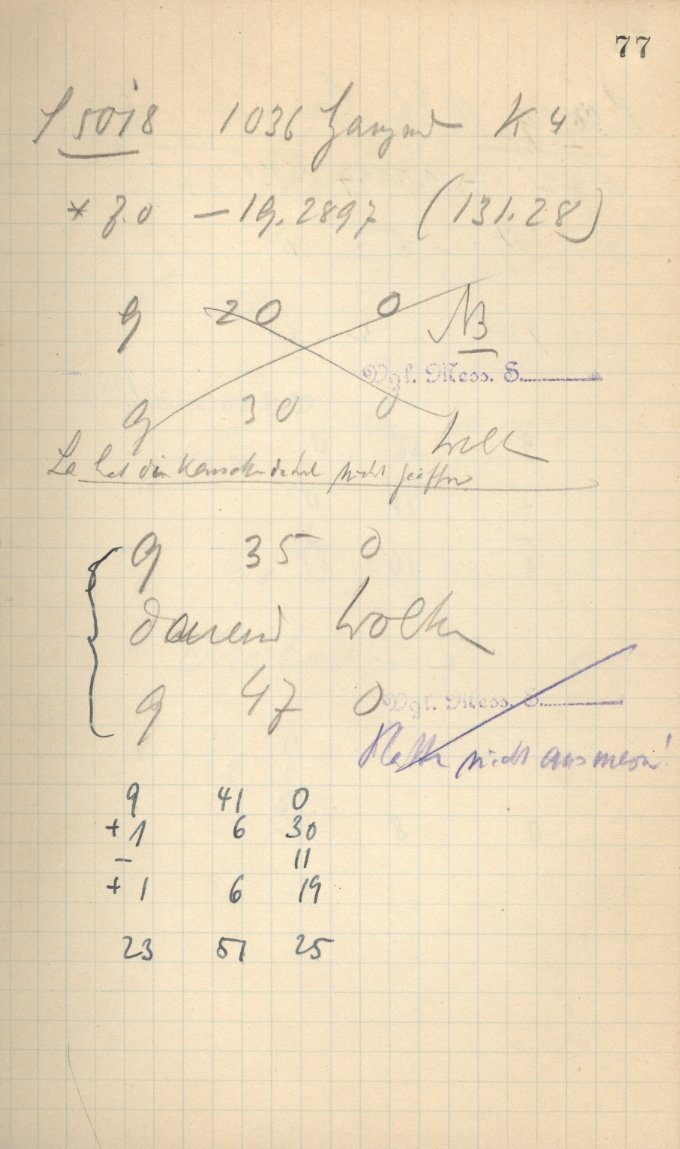 77
S 5018 1036 Ganymed K 4
* 8.0 — 19.2897 (131.28)
9 20 0 NB
Vgl. Mess. S.
9 30 0 Wolk
La hat die Kassette nicht geöffn
9 35 0
dauernd Wolken
9 47 0 Vgl. Mess. S.
Platte nicht ausmessen!
9 41 0
+ 1 6 30
— 11
+ 1 6 19
23 51 25